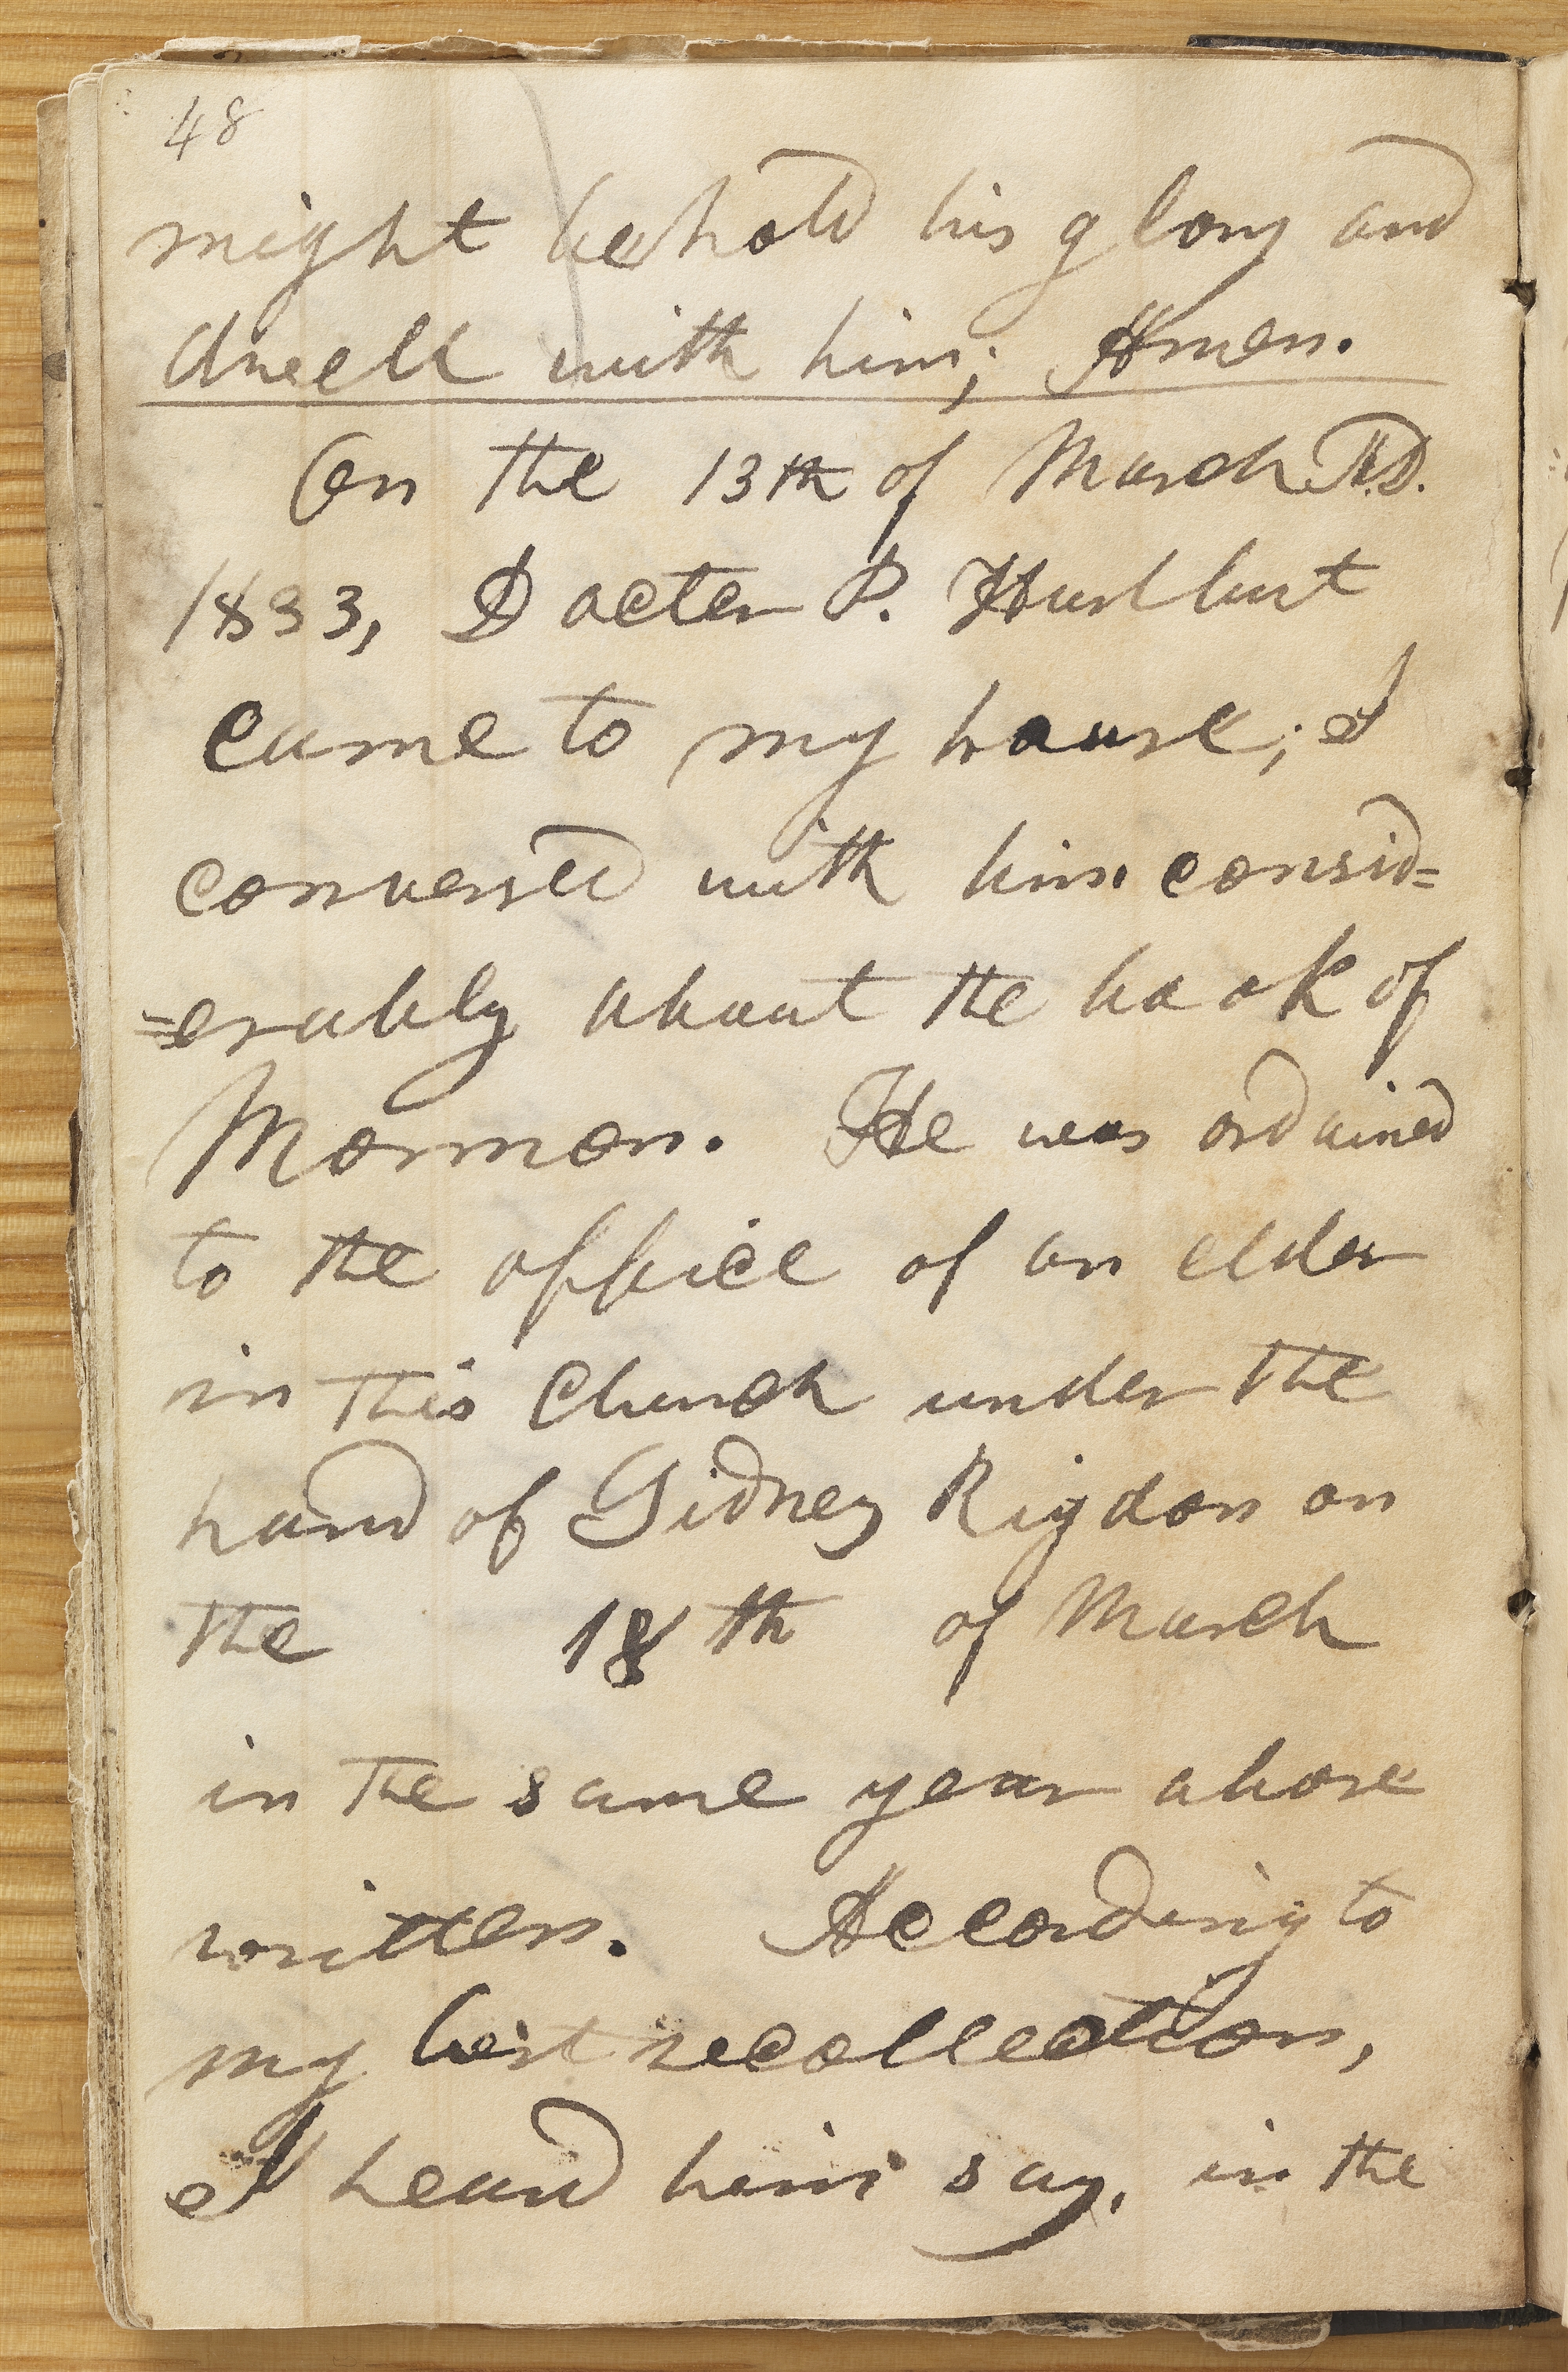 48
might behold his glory and
dwell with him; Amen.
On the 13th of March A.D.
1833, Docter P. Hurlburt
came to my house; I
conversed with him consid=
=erably about the book of
Mormon. He was ordained
to the office of an elder
in this Church under the
hand of Sidney Rigdon on
the 18th of March
in the same year above
written. According to
my best recollection,
I heard him say, in the